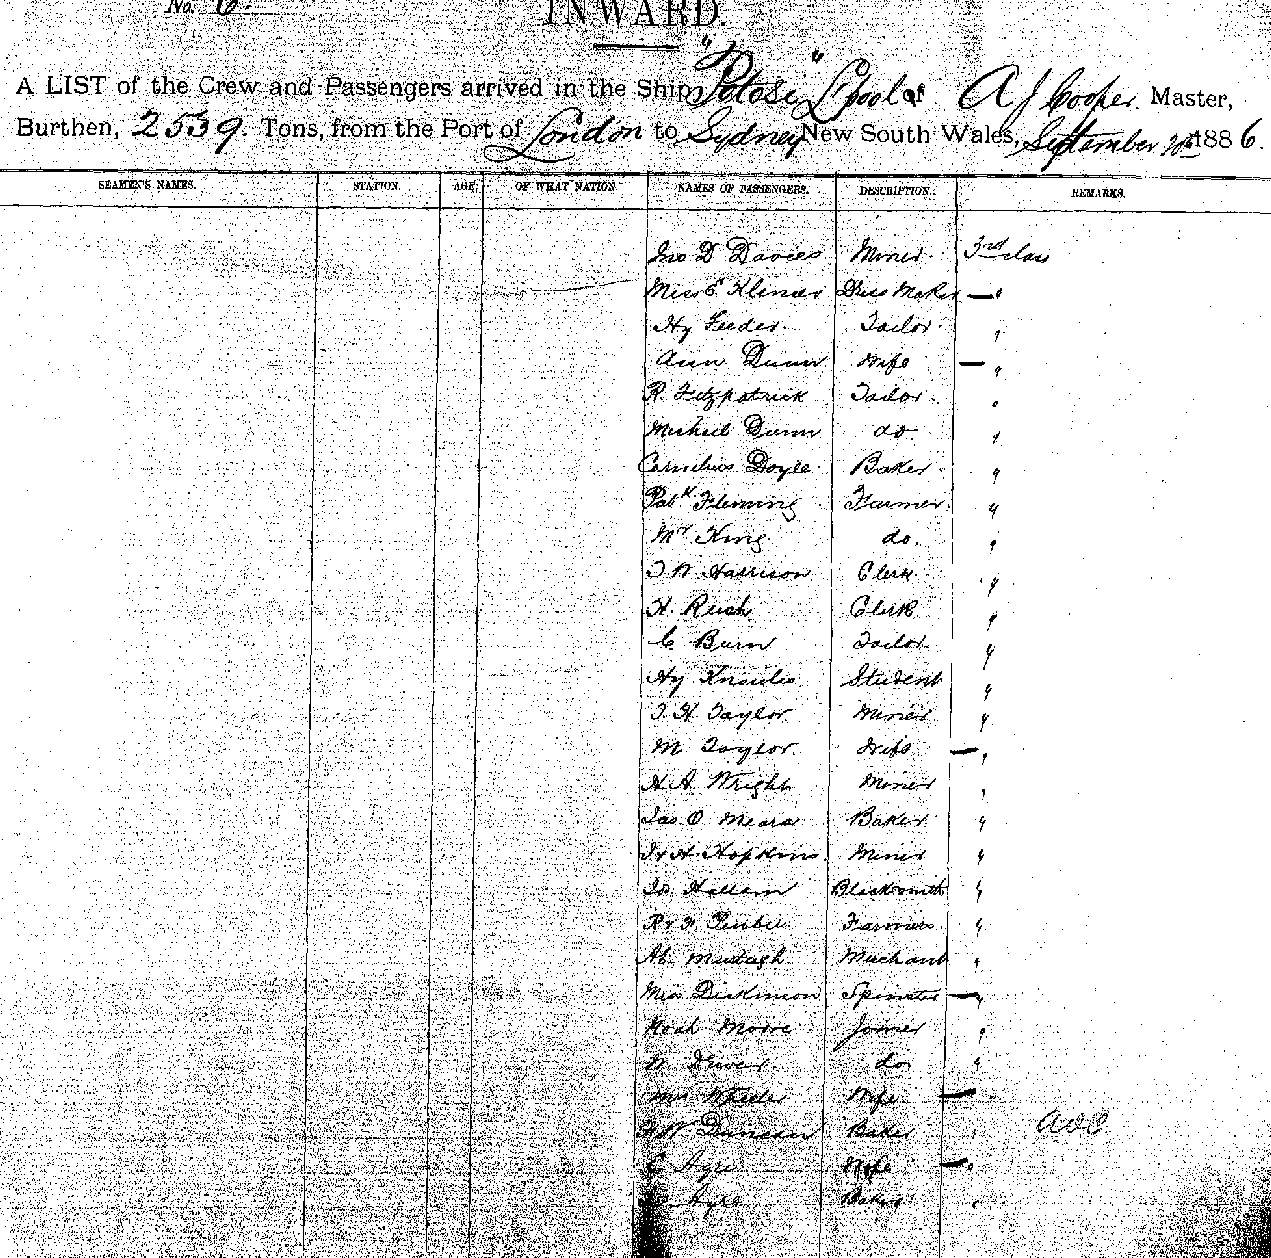 No. 6.
INWARD.
A LIST of the Crew and Passengers arrived in the Ship "Potosi" L'pool of A J Cooper. Master,
Burthen, 2539. Tons, from the Port of London to Sydney New South Wales, September 20th 1886.
SEAMEN'S NAMES. STATION. AGE. OF WHAT NATION. NAMES OF PASSENGERS. DESCRIPTION. REMARKS.
Jno D Davies Miner. 3rd class
Miss E Dress Maker — "
Hy Feeder. Tailor. "
Ann Dunn Wife — "
R. Fitzpatrick Tailor. "
Michael Dunn do. "
Cornelius Doyle. Baker. "
Patk Fleming Farmer. "
Mr King do. "
J W Harrison Clerk "
H. Rush Clerk "
C Burn Tailor "
Hy Student "
J. H Taylor Miner "
M Taylor Wife — "
H A Wright Miner "
Jas O Meara Baker "
Hopkins Miner "
Jo Hallam Blacksmith "
R & F Farmers "
Murtagh Merchant "
Miss Dickinson Spinster — "
Noah Moore Joiner "
W do "
Mrs Wheeler Wife — "
Duncan Baker "
E Ayre Wife — "
Ayre Baker "